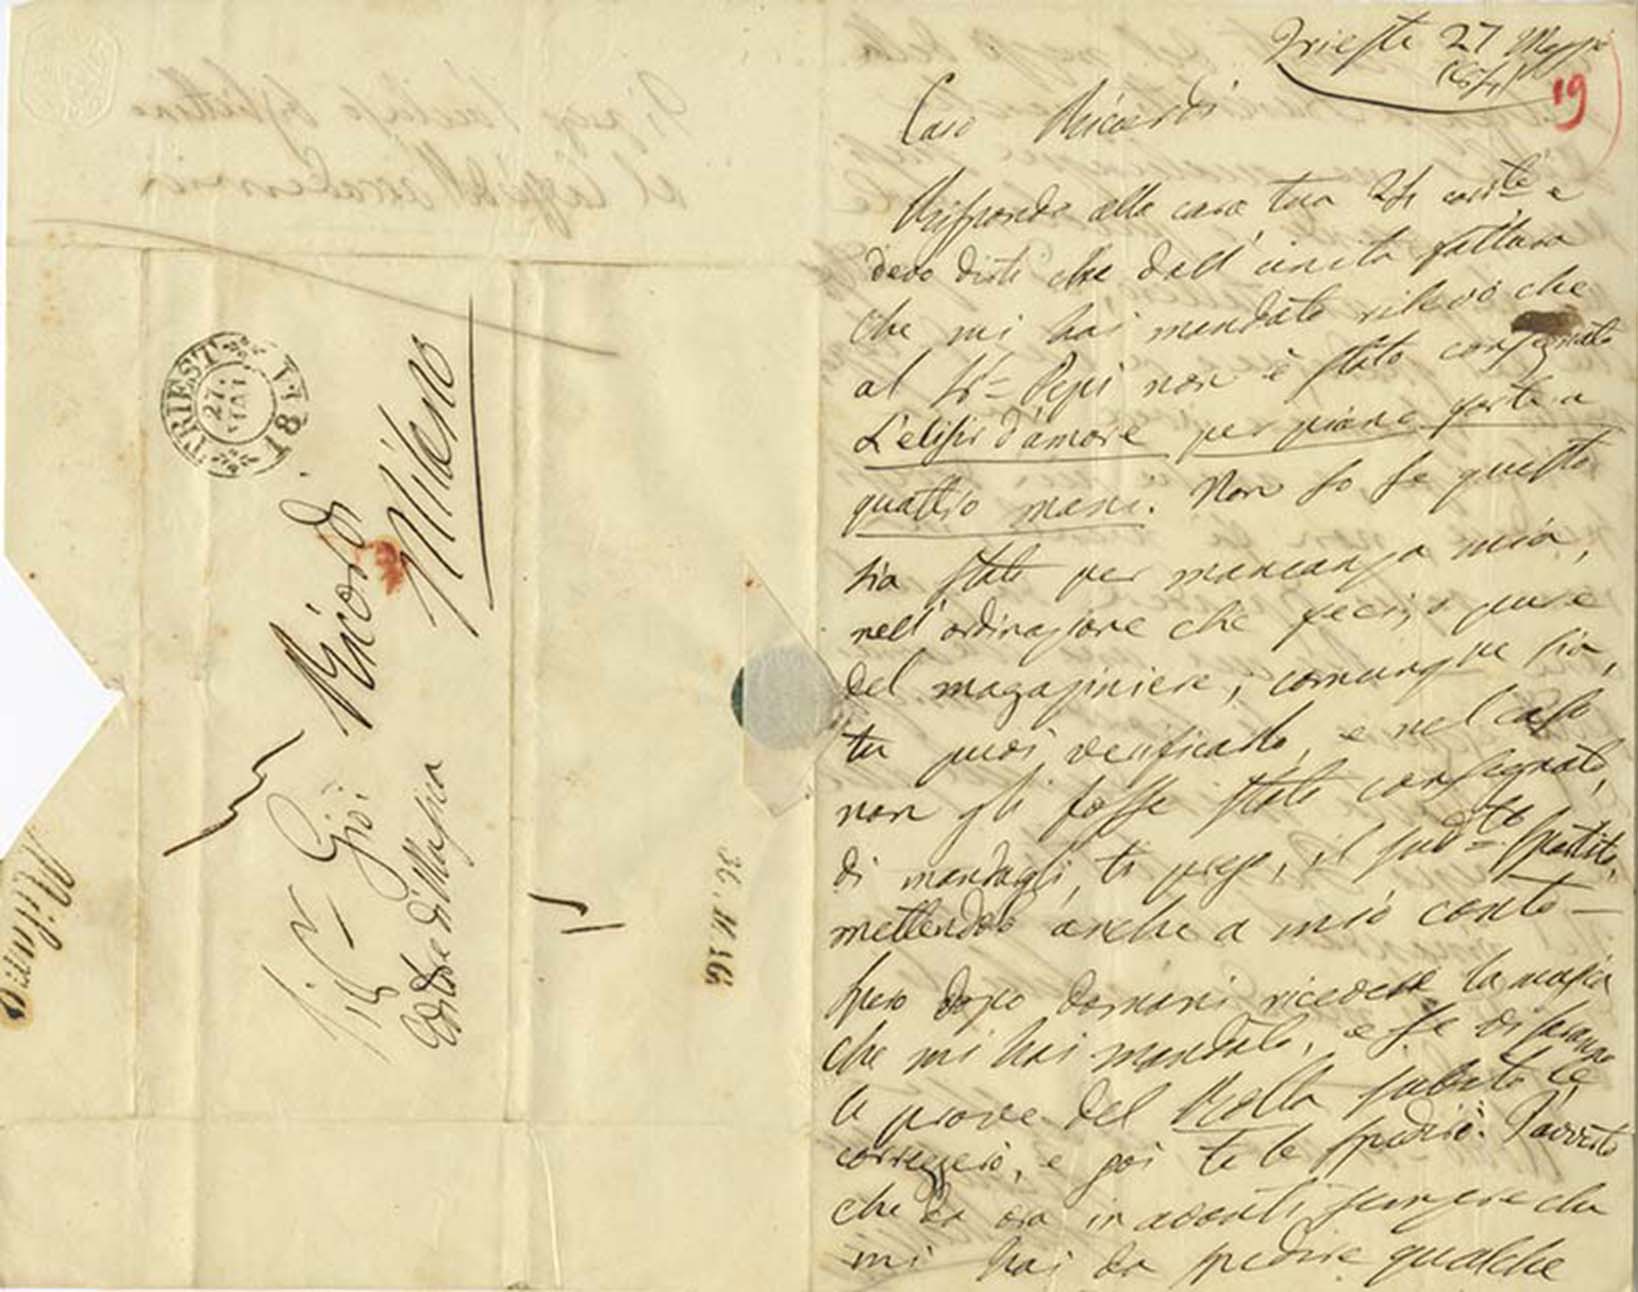 TRIEST
27.
MAI
Milano
Ricordi
Sigr Gio:
Editore di Musica
Milano
Trieste 27 Maggio
19
Caro Ricordi
Rispondo alla cara tua 24 corrte e
devo dirti che dall'unita fattura
che mi hai mandato rilevo che
al Sr Pepi non è stato consegnato
L'elisir d'amore per piano forte a
quattro mani. Non so se questo
sia stato per mancanza mia,
nell'ordinazione che feci, o pure
del magaziniere; comunque sia,
tu puoi verificarlo, e nel caso
non gli fosse stato consegnato,
di mandargli, ti prego, il sudto spartito,
mettendolo anche a mio conto —
Spero dopo domani ricevere la musica
che mi hai mandato, e se vi saranno
le prove del subito le
correggerò, e poi te le spedirò. T'avverto
che da ora in avanti sempre che
mi hai da spedire qualche